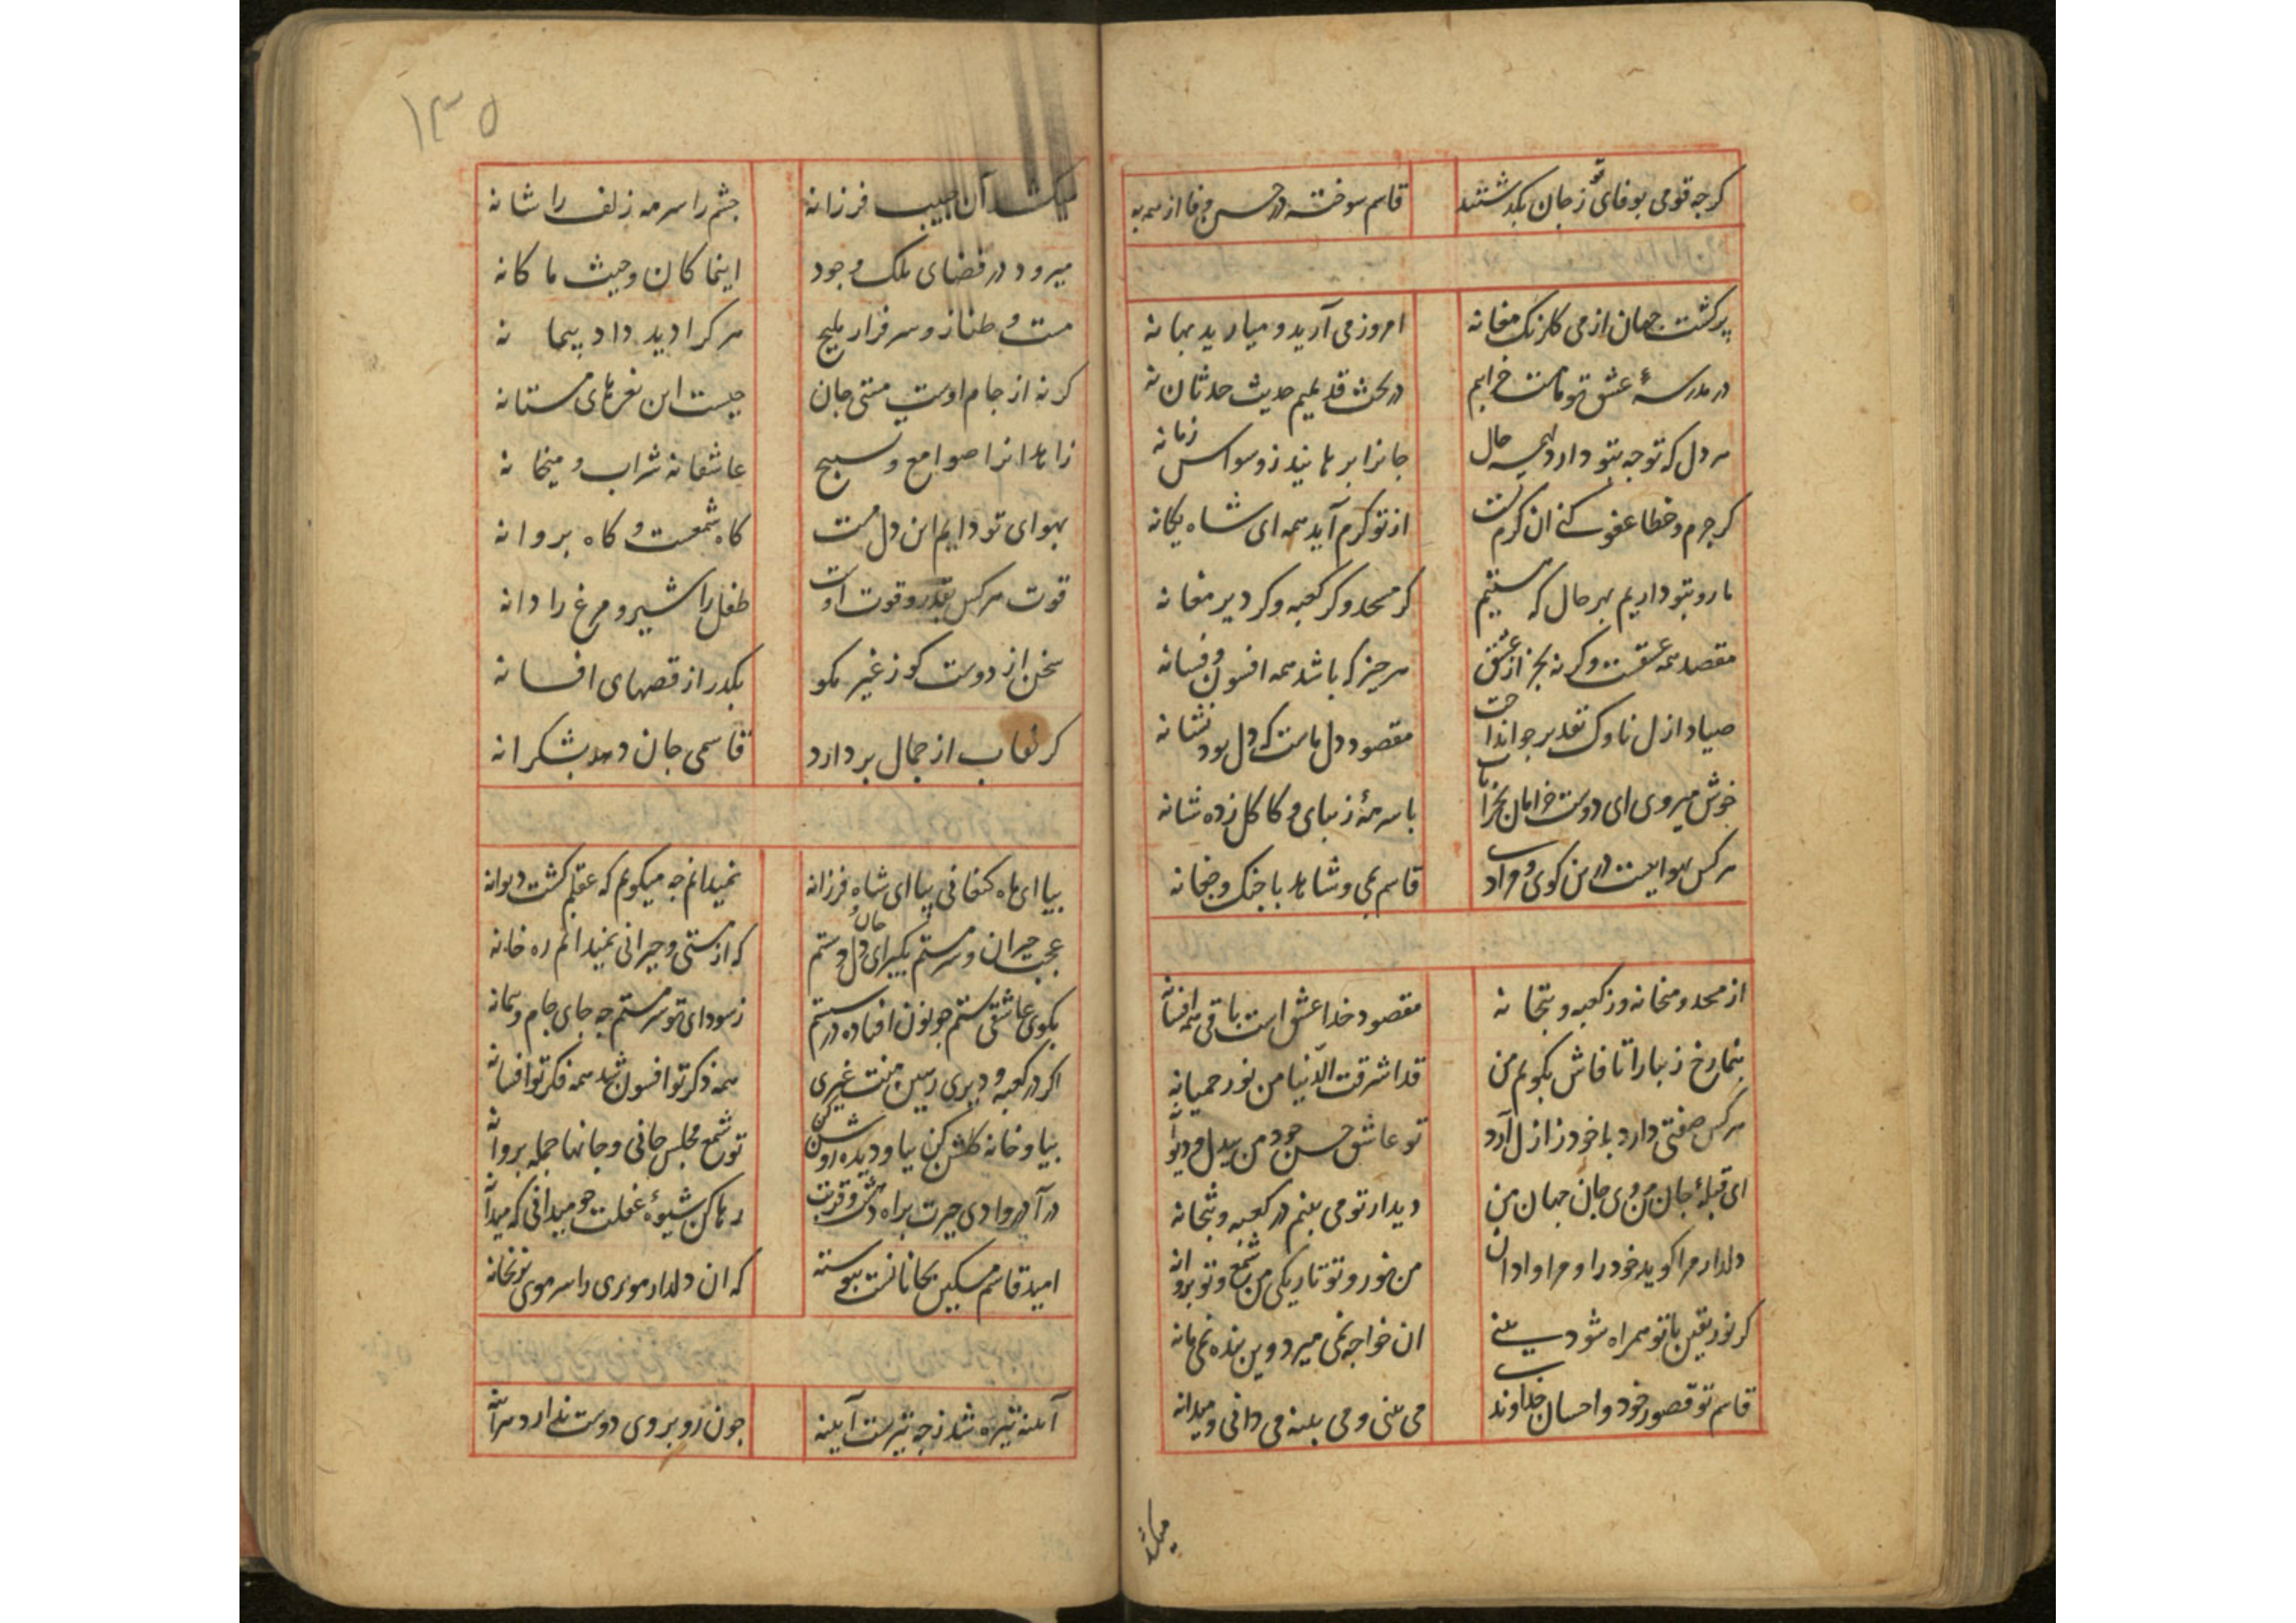 کرجه قومی بوفای تو ز جان بکذشتند قاسم سوخته در حسن وفا از همه به
پرکشت جهان از می کلرنک مغانه امروز می آرید و میارید بهانه
در مدرسهٔ عشق تو ما مست خرابیم در بحث قدیمیم حدیث حدثان نه
هر دل که توجه بتو دارد همه حال جانرا برهانید ز وسواس زمانه
کر جرم و خطا عفو کنی ان کرم تست از تو کرم آید همه ای شاه یکانه
ما رو بتو داریم بهر حال که هستیم کر مسجد و کر کعبه و کر دیر مغانه
مقصد همه عشقست و کرنه بجز از عشق هر جیز که باشد همه افسون و فسانه
صیاد ازل ناوک تقدیر جو انداخت مقصود دل ماست که دل بود نشانه
خوش میروی ای دوست خرامان بخرابات با سرمهٔ زیبای و کاکل زده شانه
هر کس بهواییست درین کوی و قاسم بمی و شاهد با جنک و جغانه
از مسجد و میخانه وز کعبه و بتخانه مقصود خدا عشق است باقی همه افسانه
بنما رخ زیبا را تا فاش بکویم من قد اشرقت الدنیا من نور حمیانه
هر کس صفتی دارد با خود ز ازل آرد تو عاشق حسن خود من بیدل و دیوانه
ای قبلهٔ جان من وی جان جهان من دیدار تو می بینم در کعبه و بتخانه
دلدار مرا کوید خود را و مرا وادان من نور و تو تاریکی من شمع و تو بروانه
کر نور یقین با تو همراه شود بینی ان خواجه نمی میرد وین بنده نمی مانه
قاسم تو قصور خود و احسان خداوند می بینی و می بینه می دانی و میدانه
میکشد
۱۳۵
میکشد آن حبیب فرزانه جشم را سرمه زلف را شانه
میرود در فضای ملک وجود اینما کان و حیث ما کانه
مست و طناز و سرفراز ملیح هر کرا دید داد بیمانه
کر نه از جام اوست مستی جان جیست این نعرهای مستانه
زاهدانرا صوامع و تسبیح عاشقانه شراب و میخانه
بهوای تو دایم این دل مست کاه شمعست و کاه بروانه
قوت هر کس بقدر و قوت اوست طفل را شیر و مرغ را دانه
سخن از دوست کو ز غیر مکو بکذر از قصهای افسانه
کر نقاب از جمال بردارد قاسمی جان دهد بشکرانه
بیا ای ماه کنعانی بیا ای شاه فرزانه نمیدانم جه میکویم که عقلم کشت دیوانه
عجب حیران و سرمستم بکیر ای جان و دل دستم که از مستی و حیرانی نمیدانم ره خانه
بکوی عاشقی هستم جو نون افتاده در شستم ز سودای تو سرمستم جه جای جام و بیمانه
اکر در کعبه و دیری ببین نیست غیری همه ذکر تو افسون شد همه فکر تو افسانه
بیا و خانه کلشن کن بیا و دیده روشن کن تو شمع مجلس جانی و جانها جمله بروانه
درآ در وادی حیرت براه دهشت و قربت رها کن شیوهٔ غفلت جو میدانی که میدانه
امید قاسم مسکین بجانانست بیوسته که ان دلدار موبری را سر موی
آینه تیره شد ز جه تیرست آینه جون رو بروی دوست ندارد هر آینه